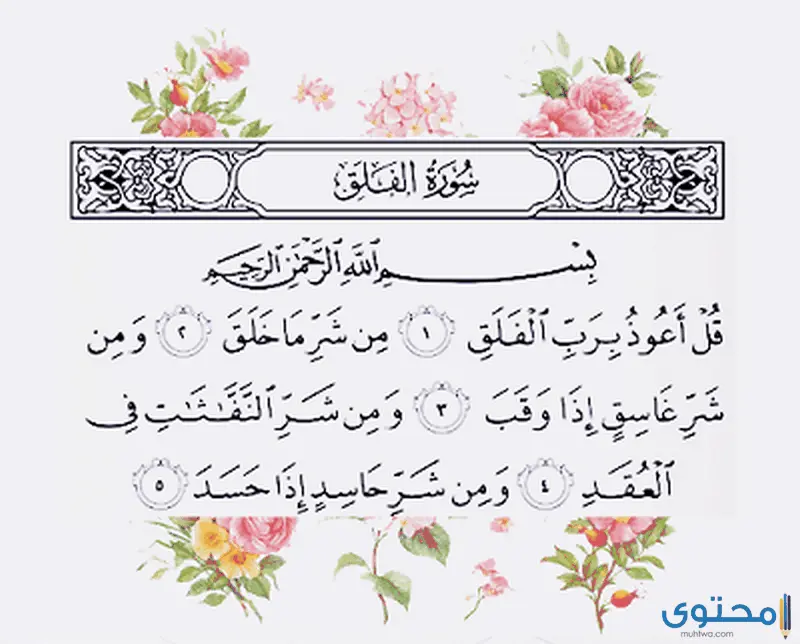 سُورَةُ الفَلَقِ
بِسْمِ اللَّهِ الرَّحْمَٰنِ الرَّحِيمِ
قُلْ أَعُوذُ بِرَبِّ الْفَلَقِ ١ مِن شَرِّ مَا خَلَقَ ٢ وَمِن
شَرِّ غَاسِقٍ إِذَا وَقَبَ ٣ وَمِن شَرِّ النَّفَّاثَاتِ فِي
الْعُقَدِ ٤ وَمِن شَرِّ حَاسِدٍ إِذَا حَسَدَ ٥
محتوى
muhtwa.com